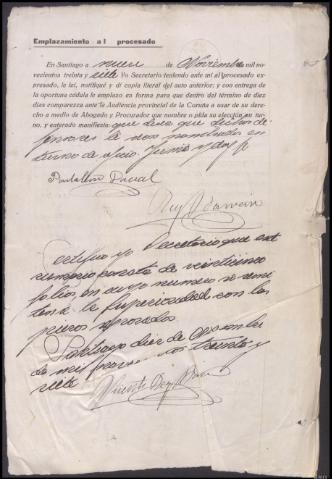 Emplazamiento al procesado
En Santiago a nueve de Noviembre de mil no-
vecientos treinta y siete Yo Secretario teniendo ante mí al procesado ex-
presado, le leí, notifiqué y dí copia literal del auto anterior; y con entrega de
la oportuna cédula le emplazo en forma para que dentro del término de diez
días comparezca ante la Audiencia provincial de la Coruña a usar de su derecho
a medio de Abogado y Procurador que nombre o pida su elección en tur-
no, y enterado manifiesta: que desea que dichos de-
fensores le sean nombrados en
turno de oficio. Firma y doy fe
Certifico yo Secretario que este
sumario consta de veintiseis
folios en cuyo número se remi-
te a la Superioridad con las
piezas
Santiago diez de Noviembre
de mil novecientos treinta y
siete
Vicente Rey